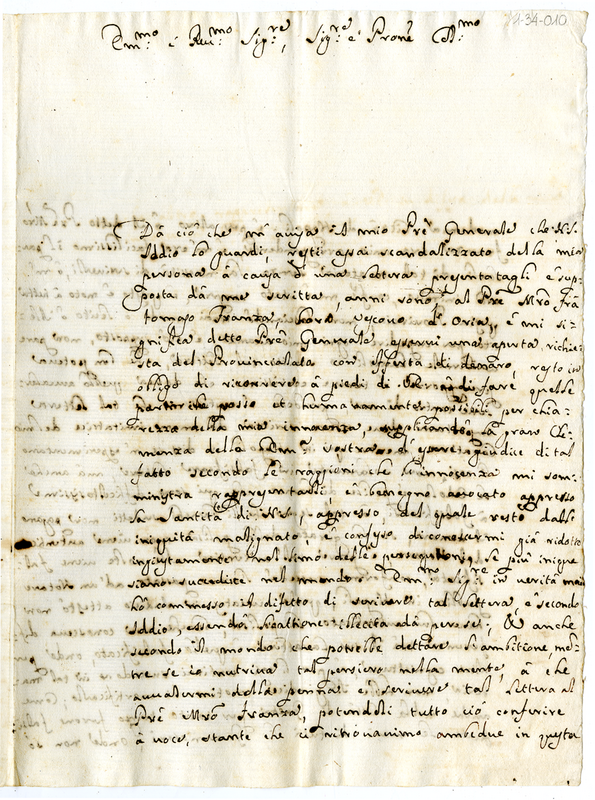 11-34-010
Em:mo è Reu:mo Sig:re, Sig:re è Prone
Dà ciò che mi auisa il mio Prè Generale che N. S.
Iddio lo guardi, resti assai scandalizzato della mia
persona à causa d'una lettera presentatagli è sup-
posta dà me scritta, anni sono, al Prè Mrò Frà
tomaso Franza, hora Vescouo d'Oria, è mi si-
gnifica detto Prè Generale esserui una aperta richie-
sta del Prouincialato con offerta di denaro, resto in
obligo di ricorrere à piedi di fare quelle
posso et humanamente possibili per chia-
rezza della mia innocenza, supplicando la gran Cle-
menza della Em: vostra d'essere giudice di tal
fatto secondo le raggioni che l'innocenza mi som-
ministra rappresentarli, è benegno auocato appresso
la Santità di N. S., appresso del quale resto dalle
iniquità malignato è confuso di conoscermi già ridotto
ingiustamente nel seno delle persequtioni, le più inique
siano succedute nel mondo. Em:mo Sig:re in verità mai
hò commesso il difetto di scriuere tal lettera, è secondo
Iddio, essendo illecita dà per se; & anche
secondo il mondo che potrebbe dettare l'ambitione men-
tre se io nutriua tal pensiero nella mente, à che
auualermi della penna è scriuere tal lettera al
Prè Mrò Franza, potendoli tutto ciò conferire
à uoce, stante che ci ritrouauimo ambedue in questa